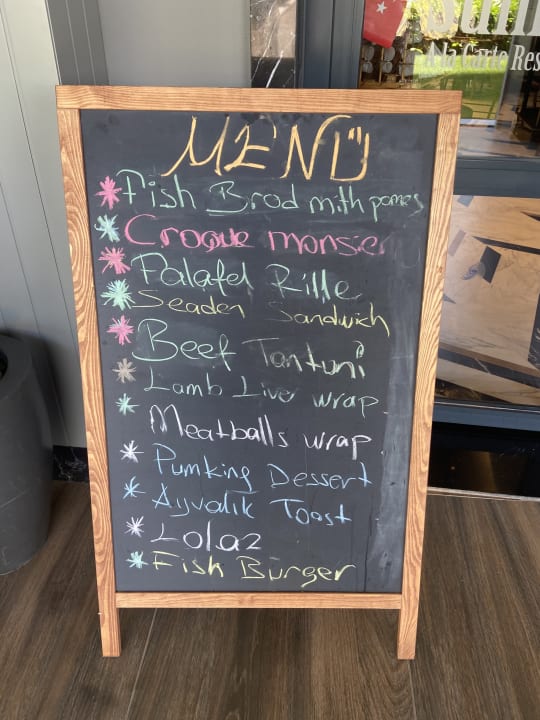 MENÜ
Fish Brod with pomes
Croque monsie
Falafel Rille
Seaden Sandwich
Beef Tantuni
Lamb Liver wrap
Meatballs wrap
Pumking Dessert
Ayvalık Toast
Lolaz
Fish Burger
A la Carte Res